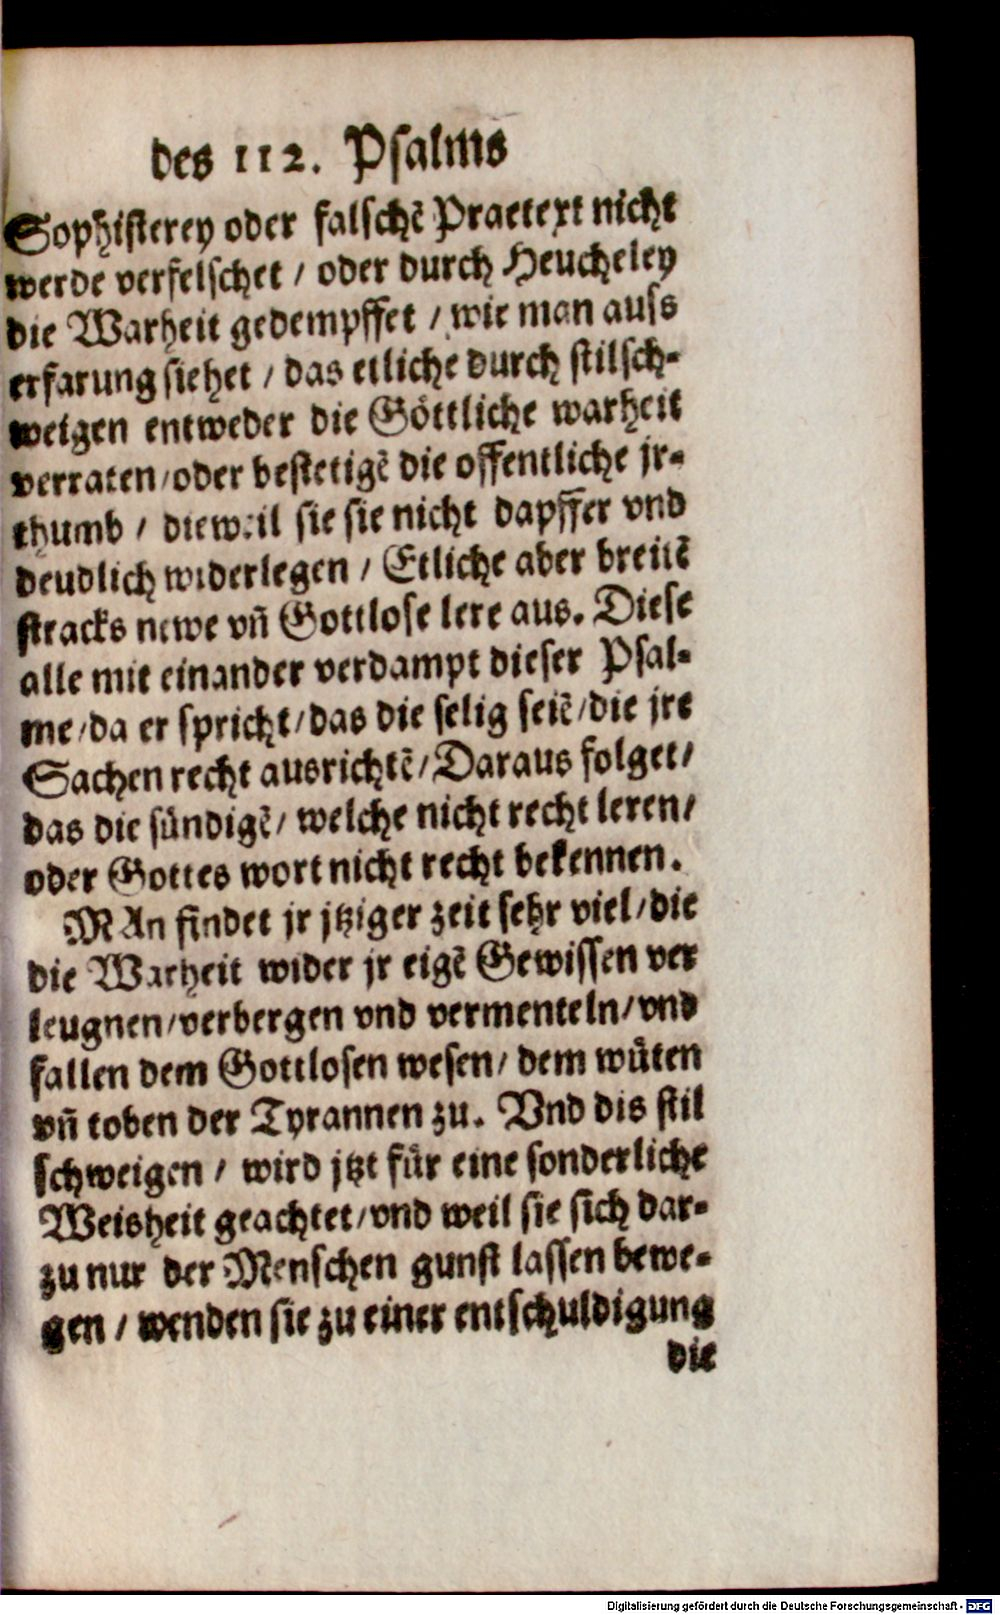 des 112. Psalms
Sophisterey oder falschẽ Praetext nicht
werde verfelschet / oder durch Heucheley
die Warheit gedempffet / wie man auss
erfarung siehet / das etliche durch stilsch-
weigen entweder die Göttliche warheit
verraten / oder bestetigẽ die offentliche jr-
thumb / dieweil sie sie nicht dapffer vnd
deudlich widerlegen / Etliche aber breitẽ
stracks newe vñ Gottlose lere aus. Diese
alle mit einander verdampt dieser Psal-
me / da er spricht / das die selig seiẽ / die jre
Sachen recht ausrichtẽ / Daraus folget /
das die sündigẽ / welche nicht recht leren /
oder Gottes wort nicht recht bekennen.
MAn findet jr jtziger zeit sehr viel / die
die Warheit wider jr eigẽ Gewissen ver
leugnen / verbergen vnd vermenteln / vnd
fallen dem Gottlosen wesen / dem wüten
vñ toben der Tyrannen zu. Vnd dis stil
schweigen / wird jtzt für eine sonderliche
Weisheit geachtet / vnd weil sie sich dar-
zu nur der Menschen gunst lassen bewe-
gen / wenden sie zu einer entschuldigung
die
Digitalisierung gefördert durch die Deutsche Forschungsgemeinschaft - DFG